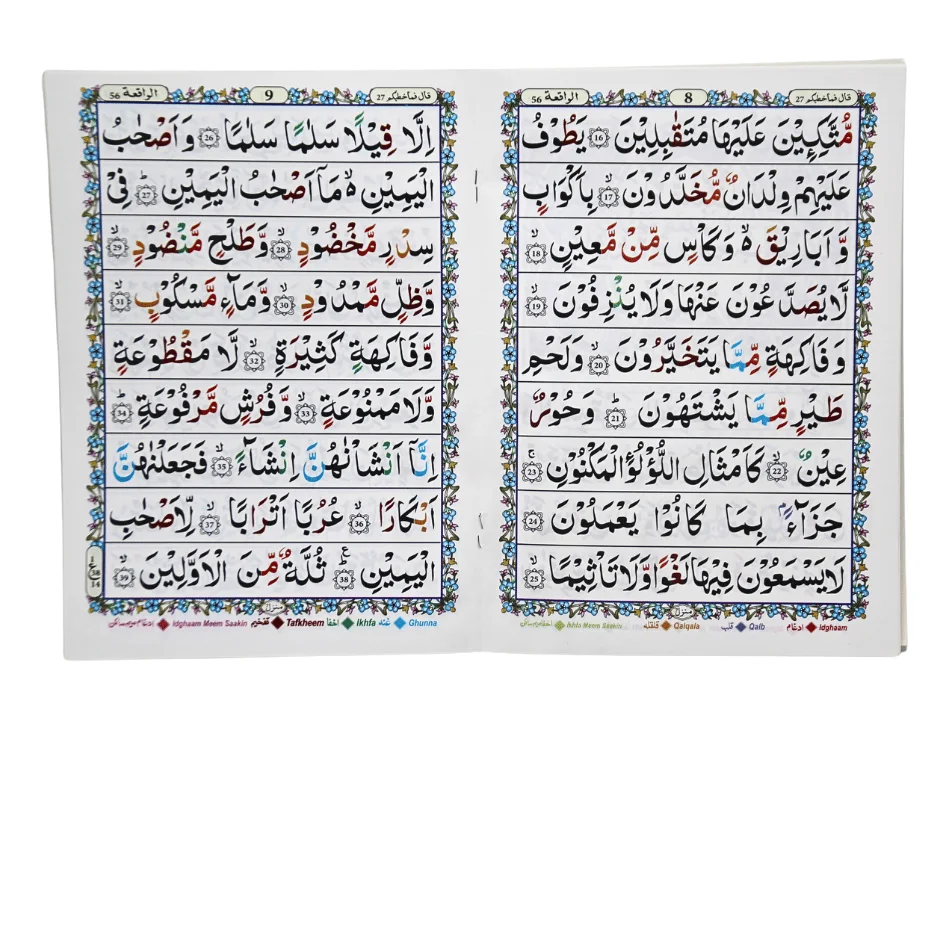 قال فماخطبكم 27
8
الواقعة 56
مُّتَّكِـِٕيْنَ عَلَيْهَا مُتَقٰبِلِيْنَ ۝16 يَطُوْفُ
عَلَيْهِمْ وِلْدَانٌ مُّخَلَّدُوْنَ ۙ۝17 بِاَكْوَابٍ
وَّ اَبَارِيْقَ ۙ وَ كَاْسٍ مِّنْ مَّعِيْنٍ ۙ۝18
لَّا يُصَدَّعُوْنَ عَنْهَا وَلَا يُنْزِفُوْنَ ۙ۝19
وَ فَاكِهَةٍ مِّمَّا يَتَخَيَّرُوْنَ ۙ۝20 وَلَحْمِ
طَيْرٍ مِّمَّا يَشْتَهُوْنَ ؕ۝21 وَ حُوْرٌ
عِيْنٌ ۙ۝22 كَاَمْثَالِ اللُّؤْلُؤِ الْمَكْنُوْنِ ۚ۝23
جَزَآءًۢ بِمَا كَانُوْا يَعْمَلُوْنَ ۝24
لَا يَسْمَعُوْنَ فِيْهَا لَغْوًا وَّلَا تَاْثِيْمًا ۙ۝25
منزل
Idghaam ادغام Qalb قلب Qalqala قلقله Ikhfa Meem Saakin اخفاميم ساكن
قال فماخطبكم 27
9
الواقعة 56
اِلَّا قِيْلًا سَلٰمًا سَلٰمًا ۝26 وَ اَصْحٰبُ
الْيَمِيْنِ ۙ۬ مَاۤ اَصْحٰبُ الْيَمِيْنِ ؕ۝27 فِيْ
سِدْرٍ مَّخْضُوْدٍ ۙ۝28 وَّ طَلْحٍ مَّنْضُوْدٍ ۙ۝29
وَّ ظِلٍّ مَّمْدُوْدٍ ۙ۝30 وَّ مَآءٍ مَّسْكُوْبٍ ۙ۝31
وَّ فَاكِهَةٍ كَثِيْرَةٍ ۙ۝32 لَّا مَقْطُوْعَةٍ
وَّلَا مَمْنُوْعَةٍ ۙ۝33 وَّ فُرُشٍ مَّرْفُوْعَةٍ ؕ۝34
اِنَّاۤ اَنْشَاْنٰهُنَّ اِنْشَآءً ۙ۝35 فَجَعَلْنٰهُنَّ
اَبْكَارًا ۙ۝36 عُرُبًا اَتْرَابًا ۙ۝37 لِّاَصْحٰبِ
الْيَمِيْنِ ؕ۠۝38 ثُلَّةٌ مِّنَ الْاَوَّلِيْنَ ۙ۝39
ع
38
14
منزل
Ghunna غنه Ikhfa اخفا Tafkheem تفخيم Idghaam Meem Saakin ادغام ميم ساكن